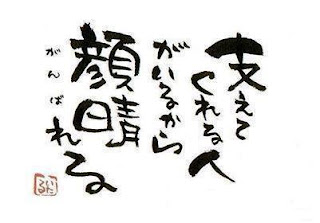 支えて
くれる人
がいるから
顔晴れる
がんばれる